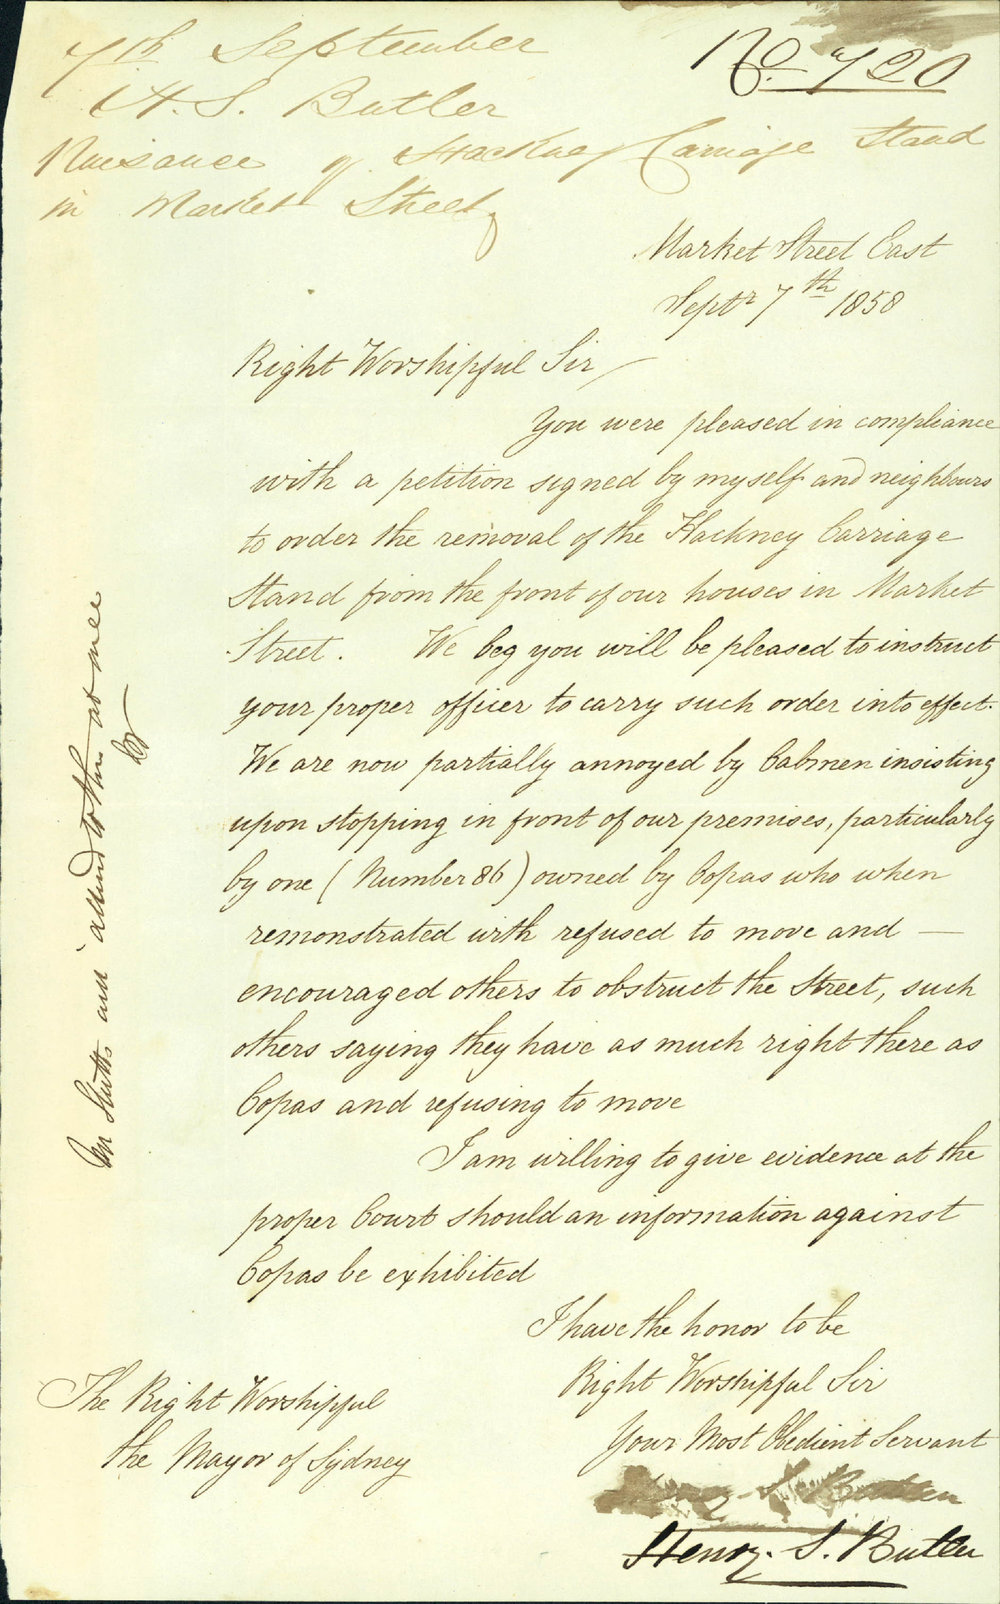 7th September
No. 720
H. S. Butler
Nuisance of Hackney Carriage Stand
in Market Street
Market Street East
Septr 7th 1858
Right Worshipful Sir
You were pleased in compliance
with a petition signed by myself and neighbours
to order the removal of the Hackney Carriage
Stand from the front of our houses in Market
Street. We beg you will be pleased to instruct
your proper officer to carry such order into effect.
We are now partially annoyed by Cabmen insisting
upon stopping in front of our premises, particularly
by one (Number 86) owned by Copas who when
remonstrated with refused to move and —
encouraged others to obstruct the Street, such
others saying they have as much right there as
Copas and refusing to move
I am willing to give evidence at the
proper Court should an information against
Copas be exhibited
I have the honor to be
Right Worshipful Sir
Your Most Obedient Servant
Henry S. Butler
Henry. S. Butler
The Right Worshipful
the Mayor of Sydney
Mr and attend to this at